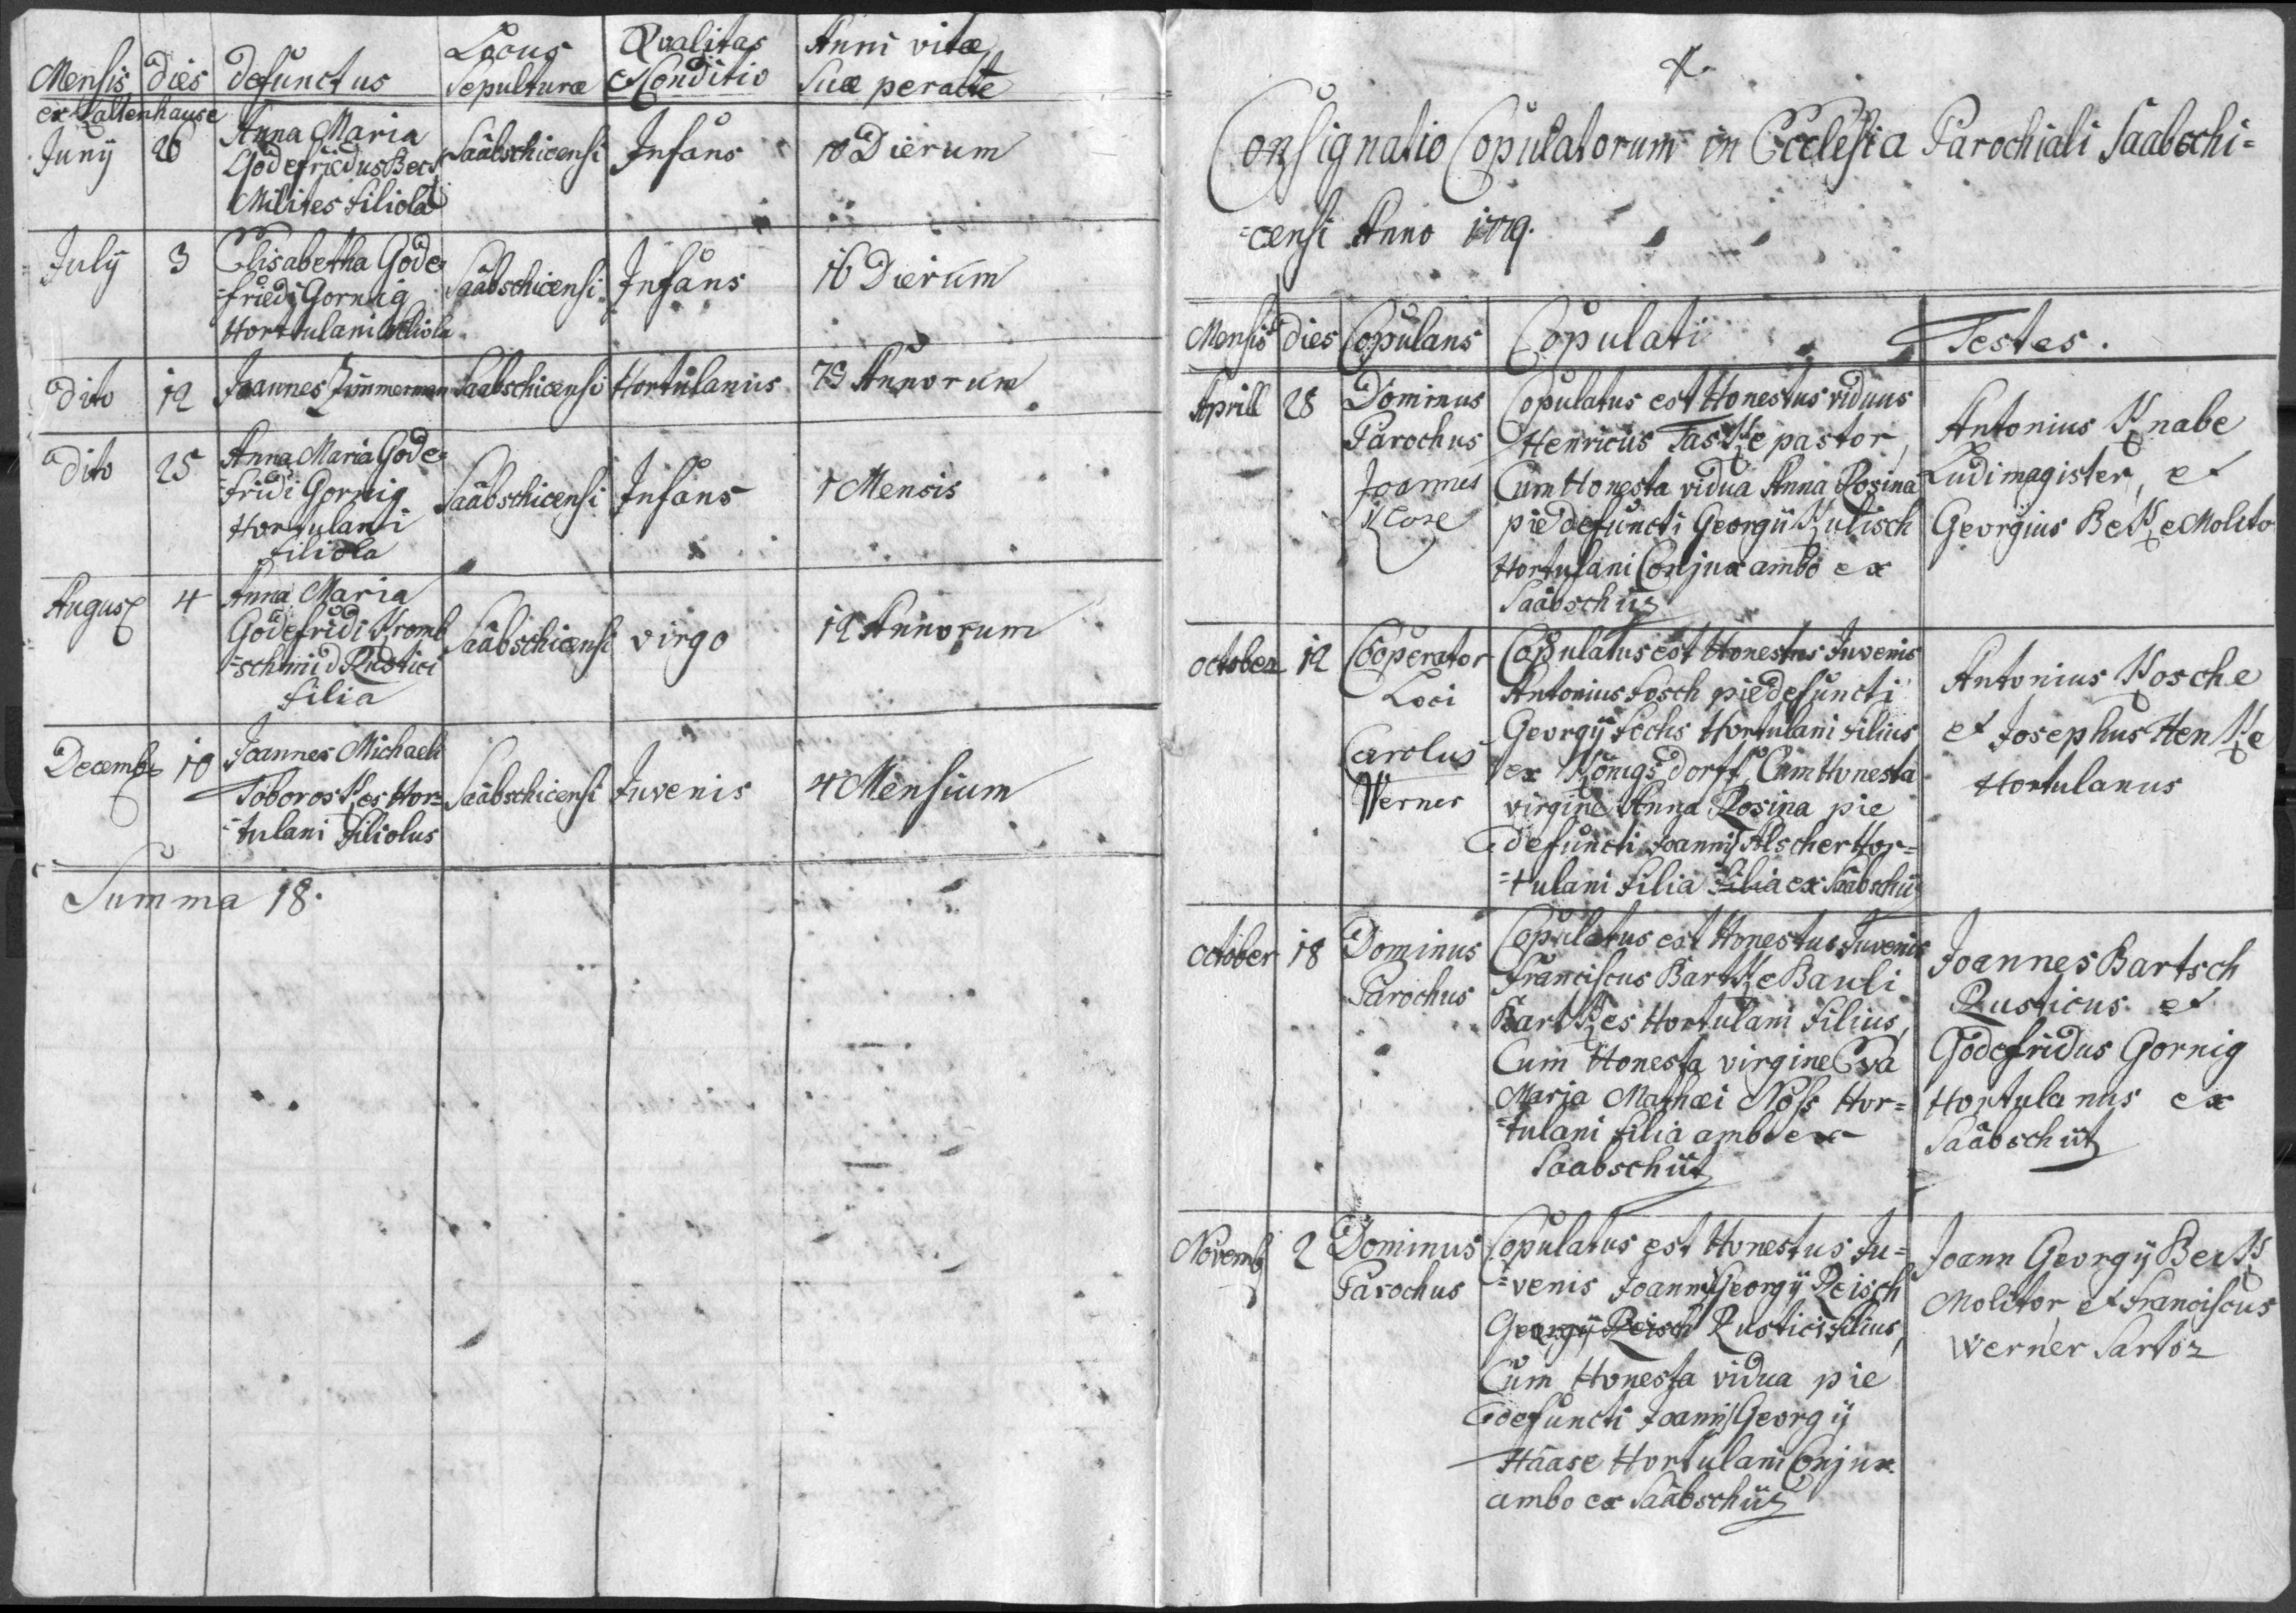 Mensis dies defunctus Locus Sepulturæ Qvalitas et Conditio Anni vitæ Suæ peractæ
ex Kaltenhause
Juny 26 Anna Maria Saabschicensi Infans 10 Dierum
Godefriedus Beck
Milites Filiola
July 3 Elisabetha Gode= Saabschicensi Infans 16 Dierum
=friedi Gornig
Hortulani filiola
dito 12 Joannes Zimmerman Saabschicensi Hortulanus 73 Annorum
dito 25 Anna Maria Gode= Saabschicensi Infans 1 Mensis
=fridi Gornig
Hortulani
filiola
August 4 Anna Maria Saabschicensi virgo 12 Annorum
Godefridi Kromb
=schmid Rustici
filia
Decemb 10 Joannes Michaeli Saabschicensi Juvenis 4 Mensium
Toboroskes Hor=
=tulani Filiolus
Summa 18.
Consignatio Copulatorum in Ecclesia Parochiali Saabschi=
=censi Anno 1779.
Mensis dies Copulans Copulati Testes.
Aprill 28 Dominus
Parochus
Joannes
Copulatus est Honestus viduus
Henricus Taske pastor,
Cum Honesta vidua Anna Rosina
pie defuncti Georgy Kulisch
Hortulani Conjux ambo ex
Saabschüz
Antonius Knabe
Ludimagister, et
Georgius Beke Molito
october 12 Cooperator
Loci
Carolus
Werner
Copulatus est Honestus Juvenis
Antonius Fosch pie defuncti
Georgy Fochs Hortulani Filius
ex Königsdorff, Cum Honesta
virgine Anna Rosina pie
defuncti Joannis Alscher Hor=
=tulani Filia Filia ex Saabschüz
Antonius Kosche
et Josephus Henke
Hortulanus
october 18 Dominus
Parochus
Copulatus est Honestus Juvenis
Franciscus Bartke Bauli
Bartkes Hortulani Filius,
Cum Honesta virgine Eva
Maria Mathæi Nols Hor=
=tulani filia ambo ex
Saabschütz
Joannes Bartsch
Rusticus et
Godefridus Gornig
Hortulanus ex
Saabschütz
Novemb 2 Dominus
Parochus
Copulatus est Honestus Ju=
=venis Joannis Georgy Reisch
Georgy Reisch Rustici filius,
Cum Honesta vidua pie
defuncti Joannis Georgy
Haase Hortulani Conjux
ambo ex Saabschüz
Joann Georgy Bek
Molitor et Franciscus
Werner Sartor